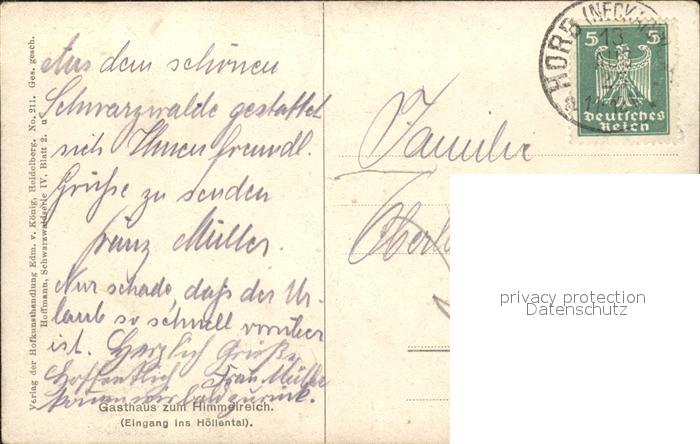 Aus dem schönen
Schwarzwalde gestattet
sich Ihnen freundl.
Grüße zu senden
Franz Müller.
Nur schade, daß der Ur-
laub so schnell vorüber
ist. Herzlich Grüße
Hoffentlich Frau Müller
kommen wir bald zurück.
Gasthaus zum Himmelreich.
(Eingang ins Höllental).
Verlag der Hofkunsthandlung Edm. v. König, Heidelberg. No. 211. Ges. gesch.
Hoffmann, Schwarzwaldserie IV, Blatt 2.
Familie
HORB (NECKAR)
13
5 5
Deutsches
Reich
privacy protection
Datenschutz